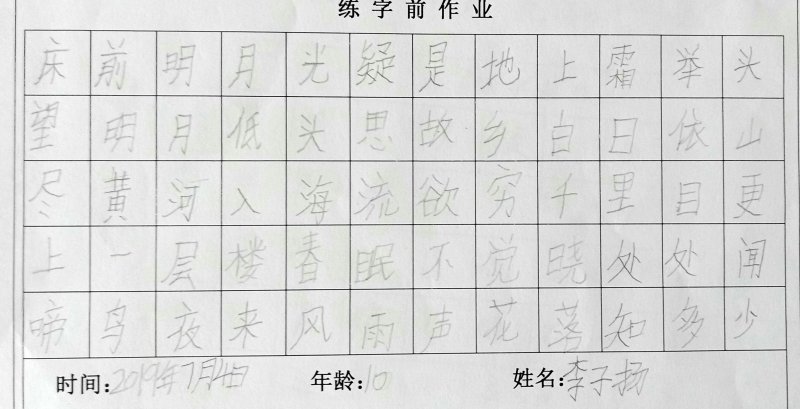 练字前作业
床前明月光疑是地上霜举头
望明月低头思故乡白日依山
尽黄河入海流欲穷千里目更
上一层楼春眠不觉晓处处闻
啼鸟夜来风雨声花落知多少
时间:2019年7月4日 年龄:10 姓名:李子扬